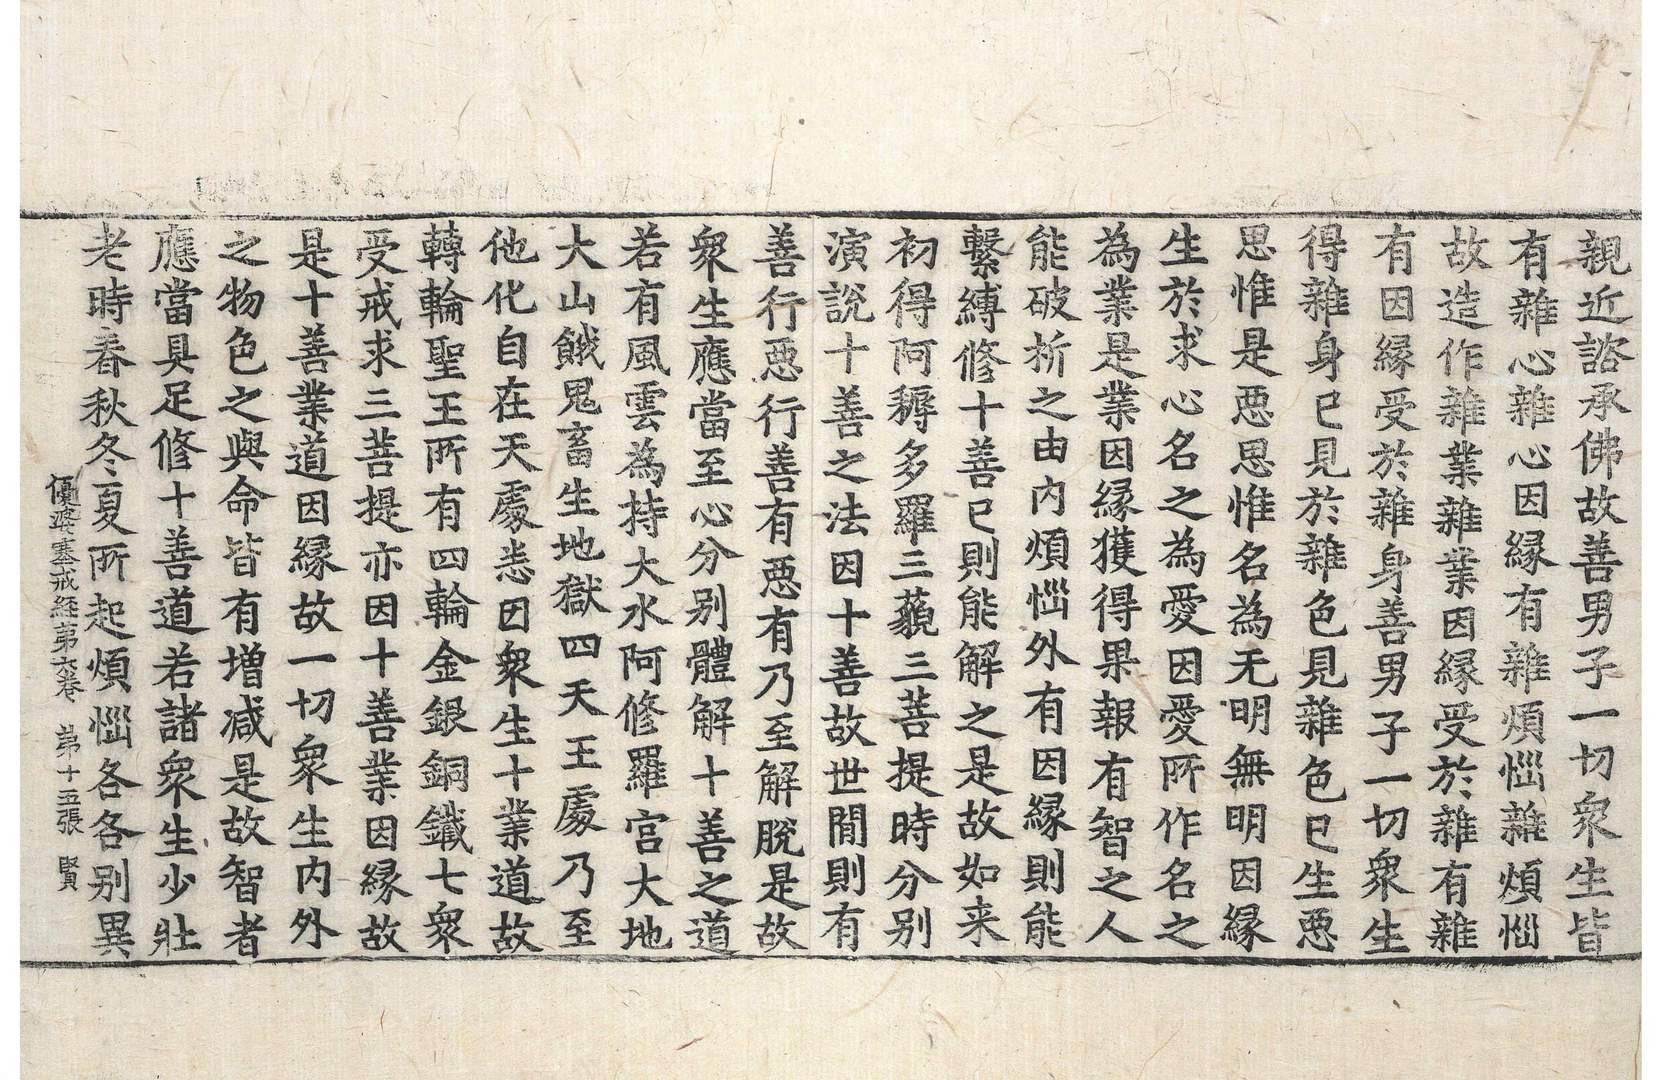 親近諮承佛故善男子一切衆生皆
有雜心雜心因縁有雜煩惱雜煩惱
故造作雜業雜業因縁受於雜有雜
有因縁受於雜身善男子一切衆生
得雜身已見於雜色見雜色已生惡
思惟是惡思惟名為无明無明因縁
生於求心名之為愛因愛所作名之
為業是業因縁獲得果報有智之人
能破折之由内煩惱外有因縁則能
繫縛修十善已則能解之是故如来
初得阿耨多羅三藐三菩提時分别
演說十善之法因十善故世間則有
善行惡行善有惡有乃至解脫是故
衆生應當至心分别體解十善之道
若有風雲為持大水阿修羅宫大地
大山餓鬼畜生地獄四天王處乃至
他化自在天處悉因衆生十業道故
轉輪聖王所有四輪金銀銅鐵七衆
受戒求三菩提亦因十善業因縁故
是十善業道因縁故一切衆生内外
之物色之與命皆有增减是故智者
應當具足修十善道若諸衆生少壯
老時春秋冬夏所起煩惱各各别異
優婆塞戒経第六卷 第十五張 賢